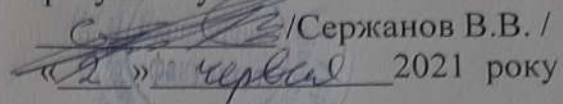 /Сержанов В.В. /
«2» червня 2021 року